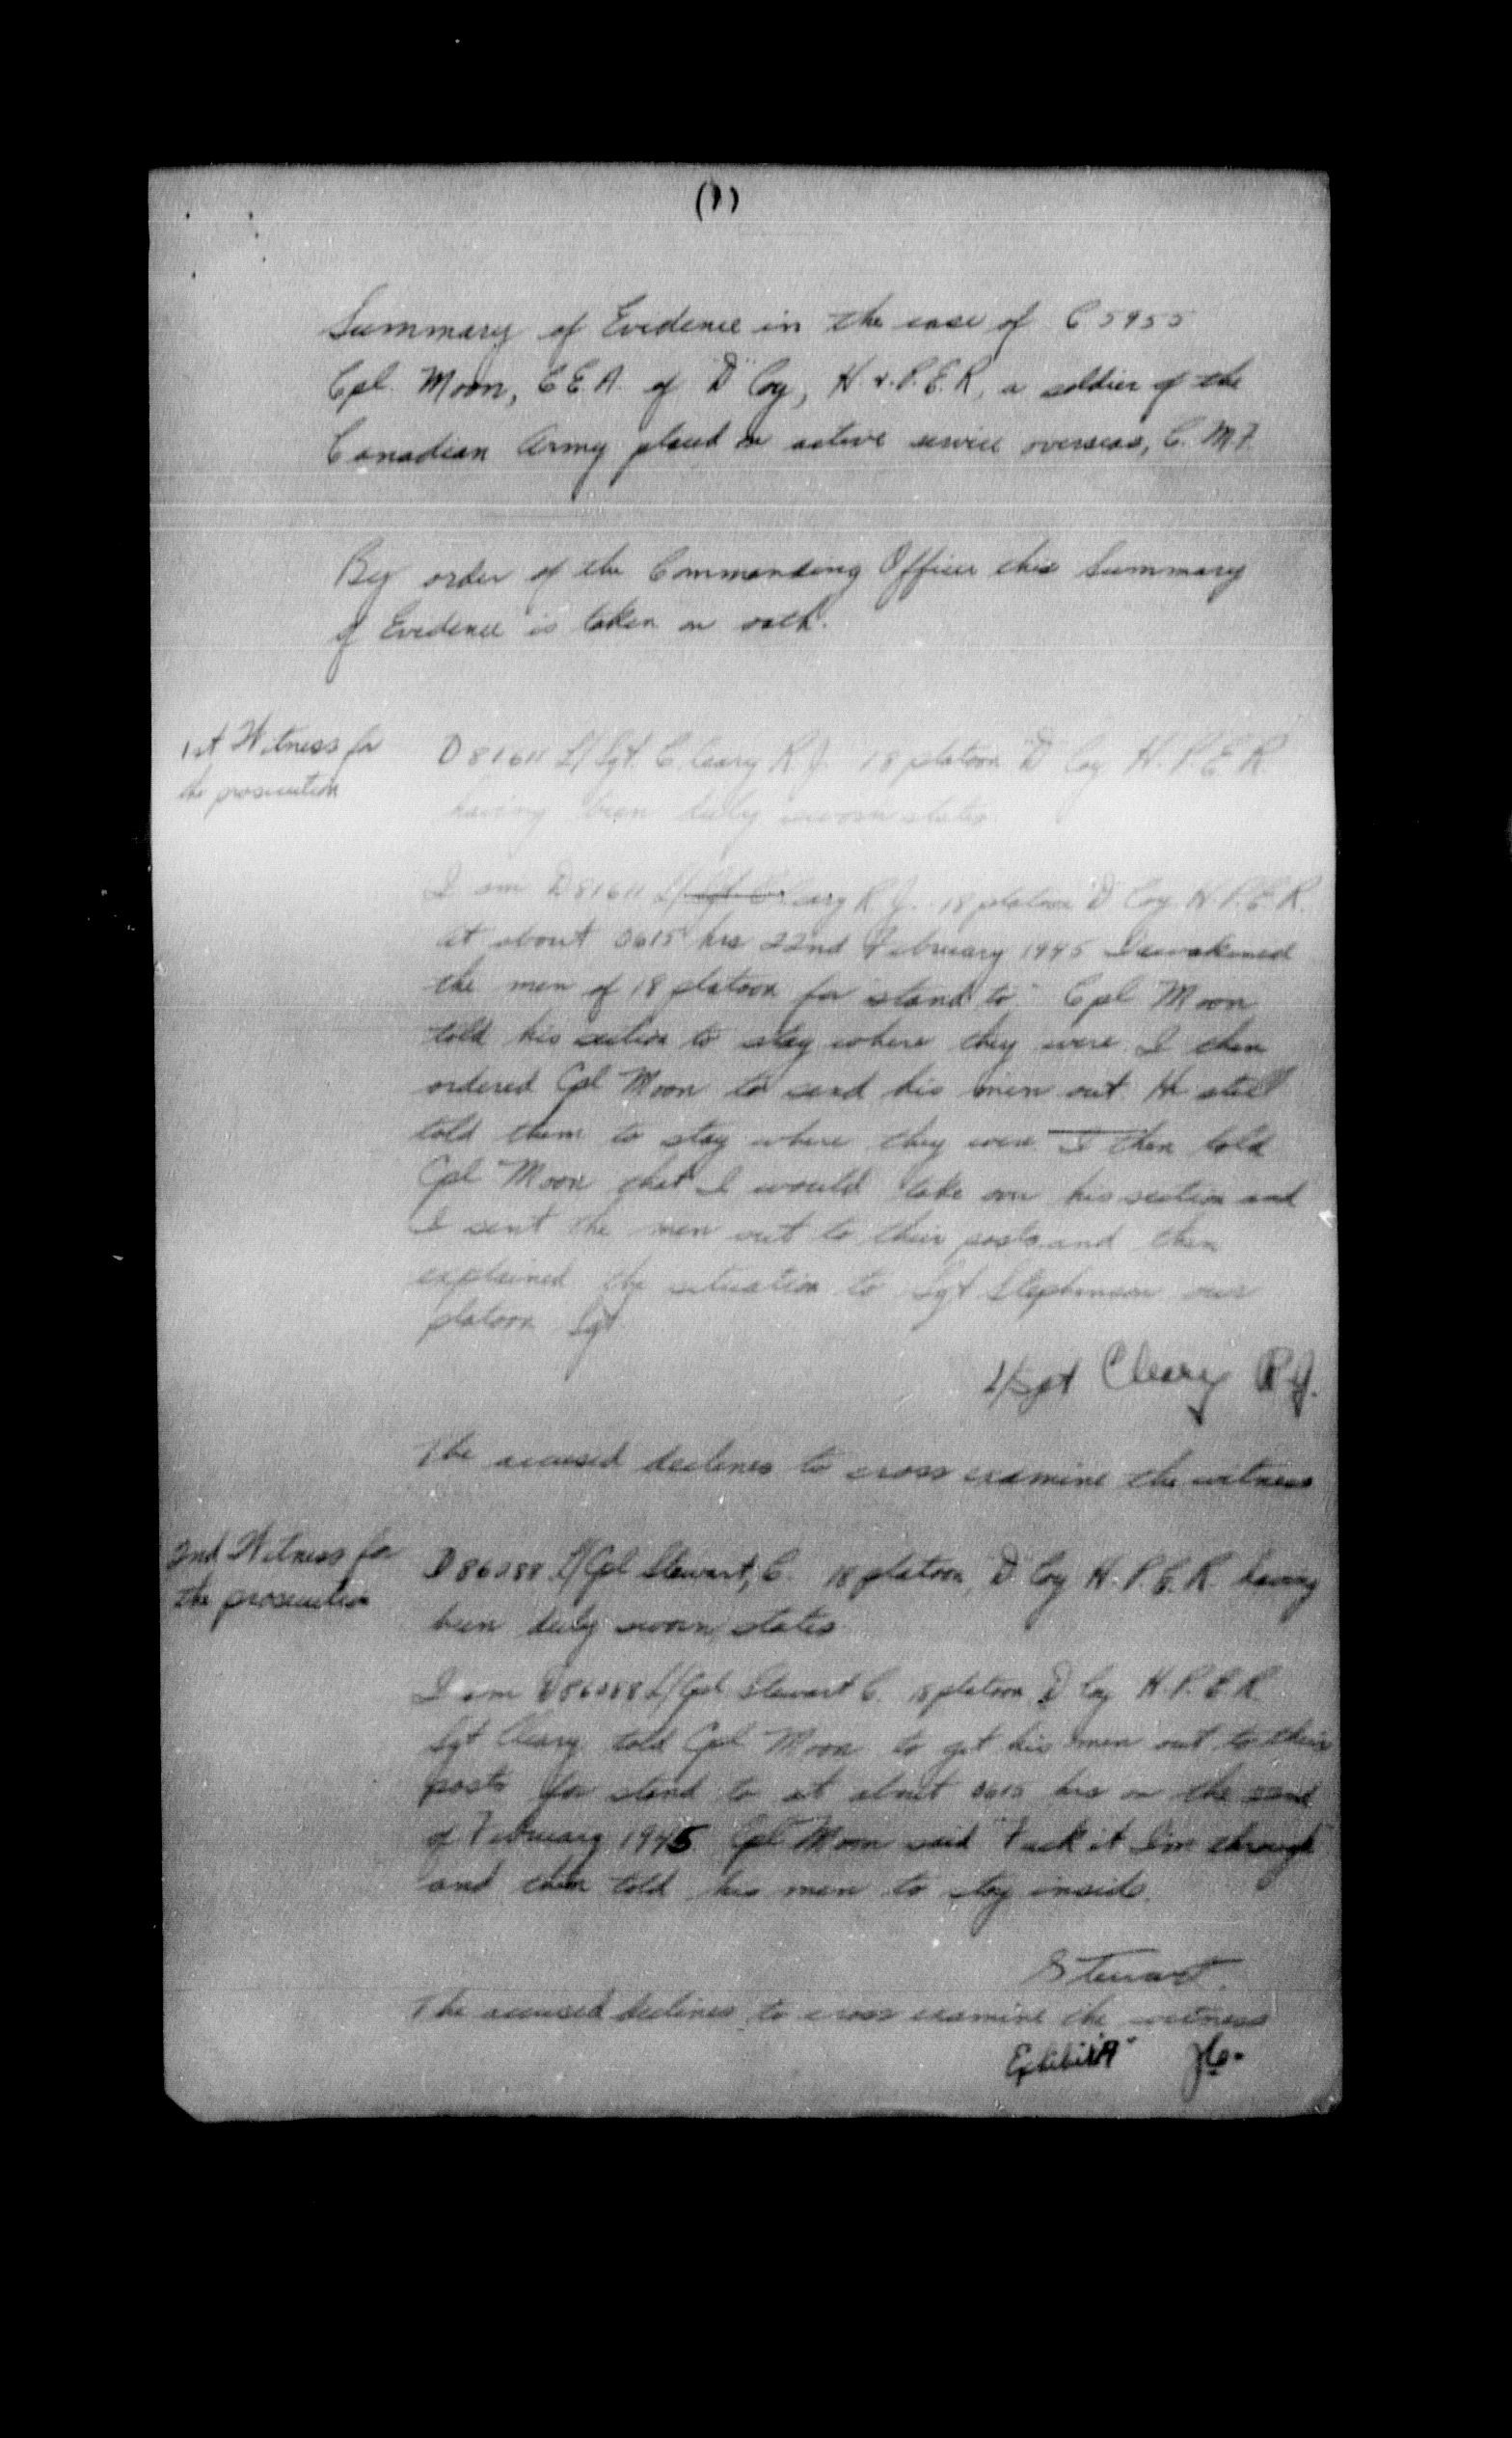 (1)
Summary of Evidence in the case of C 5955
Cpl. Moon, C.E.A. of "D" Coy, H. & P.E.R, a soldier of the
Canadian Army placed on active service overseas, C.M.F.
By order of the Commanding Officer this Summary
of Evidence is taken on oath.
1st Witness for
the prosecution
D 81611 L/Sgt. Cleary R.J. 18 platoon "D" Coy H.P.E.R.
having been duly sworn states
I am D81611 L/Sgt. Cleary R.J. 18 platoon "D" Coy H.P.E.R.
At about 0615 hrs 22nd February 1945 I awakened
the men of 18 platoon for "stand to" Cpl Moon
told his section to stay where they were. I then
ordered Cpl Moon to send his men out. He still
told them to stay where they were. I then told
Cpl Moon that I would take over his section and
I sent the men out to their posts and then
explained the situation to Sgt Stephenson our
platoon Sgt.
L/Sgt Cleary R.J.
The accused declines to cross examine the witness
2nd Witness for
the prosecution
D86088 L/Cpl Stewart, C. 18 platoon, "D" Coy H.P.E.R. having
been duly sworn, states
I am D86088 L/Cpl Stewart C. 18 platoon D Coy H.P.E.R.
Sgt Cleary told Cpl Moon to get his men out to their
posts for stand to at about 0615 hrs on the 22nd
of February 1945. Cpl Moon said "Fuck it I'm through"
and then told his men to stay inside.
Stewart.
The accused declines to cross examine the witness
Exhibit "A"